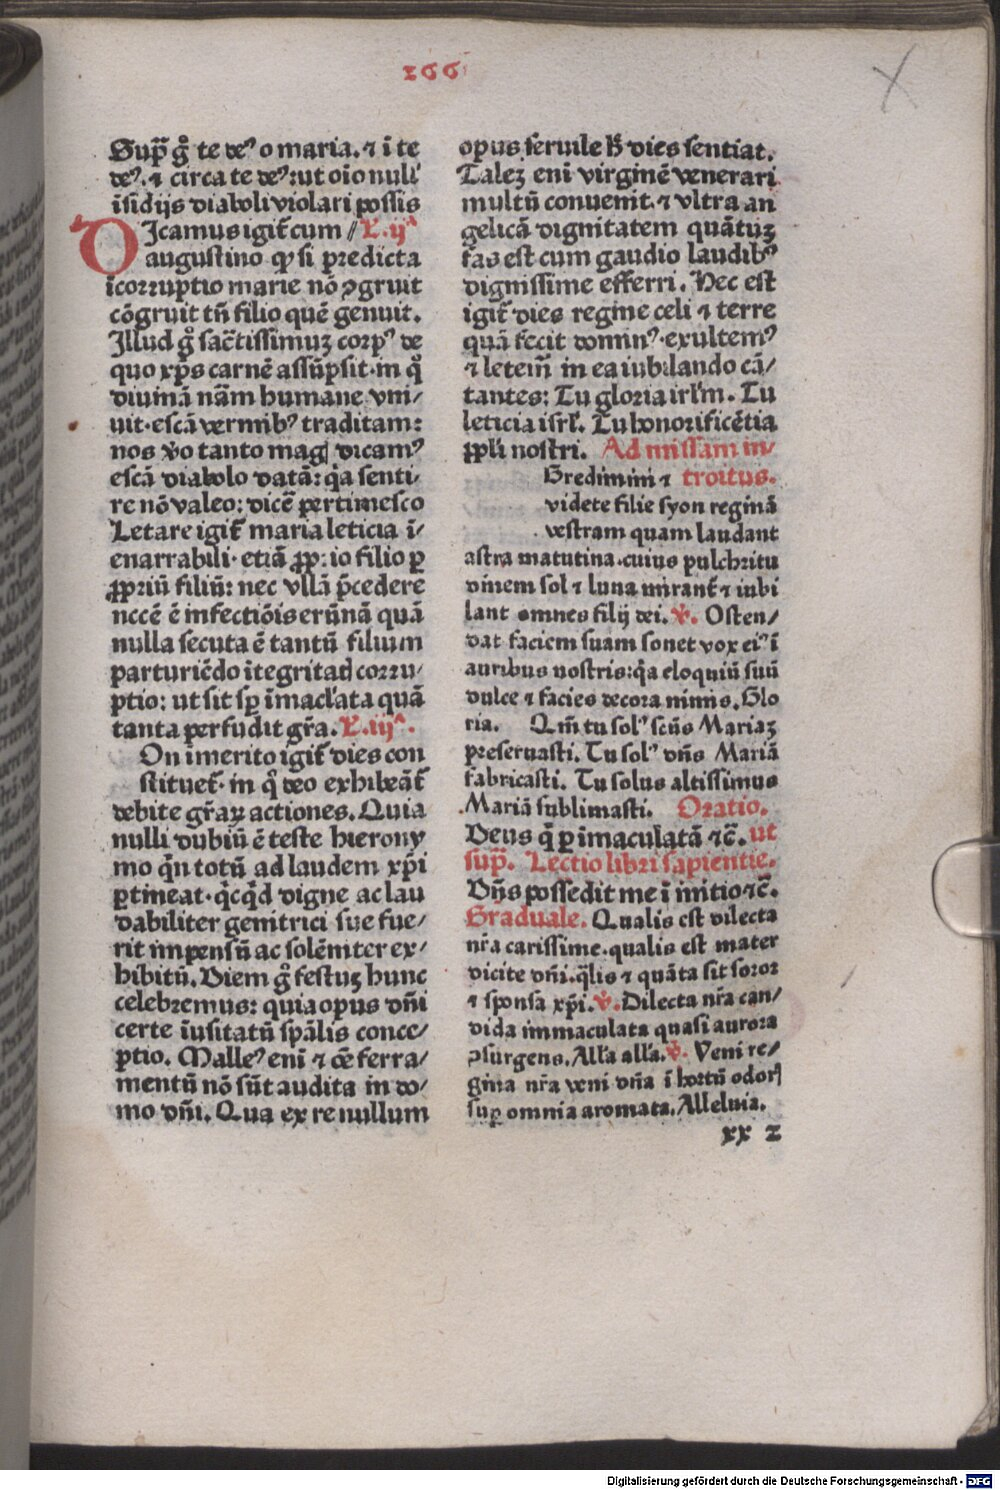 166
Sup̄ gͦ te deꝰ o maria. ⁊ ī te
deꝰ. ⁊ circa te deꝰ: ut oīo null'
īsidijs diaboli violari possis
DIcamus igit̄ cum // L. ijᵃ
augustino ꝙ si predicta
īcorruptio marie nō ꝯgruit
cōgruit tn̄ filio quē genuit.
Illud gͦ sac̄tissimuꝫ corpꝰ de
quo xp̄s carnē assūpsit· in qͦ
diuinā nām humane vni/
uit· escā vermibꝰ traditam:
nos v̊o tanto magꝭ dicamꝰ
escā diabolo datā: q̄a senti-
re nō valeo: dicē pertimesco
Letare igit̄ maria leticia ī/
enarrabili· etiā ꝓp: io filio ꝑ
ꝓpriū filiū: nec vllā p̄cedere
nccē ē infectiōis erūnā quā
nulla secuta ē tantū filium
parturiēdo ītegritatꝭ corru-
ptio: ut sit sp̄ īmac̄lata quā
tanta perfudit gr̄a. L. iijᵃ.
On imerito igit̄ dies con
stituet̄· in qͦ deo exhibeāt̄
debite gr̄aꝝ actiones. Quia
nulli dubiū ē teste hierony
mo qn̄ totū ad laudem xp̄i
ꝑtineat· qͥcqͥd digne ac lau
dabiliter genitrici sue fue/
rit impensū ac solēniter ex/
hibitū. Diem gͦ festuꝫ hunc
celebremus: quia opus dn̄i
certe īusitatū sp̄alis conce/
ptio. Malleꝰ enī ⁊ oē ferra/
mentū nō sūt audita in do/
mo dn̄i. Qua ex re nullum
opus seruile h̄ dies sentiat.
Taleꝫ eni virginē venerari
multū conuenit. ⁊ vltra an
gelicā dignitatem quātuꝫ
fas est cum gaudio laudibꝰ
dignissime efferri. Hec est
igit̄ dies regine celi ⁊ terre
quā fecit dominꝰ· exultemꝰ
⁊ letem̄ in ea iubilando cā/
tantes: Tu gloria irl'm. Tu
leticia isrl'. Tu honorificētia
ppl'i nostri. Ad missam in/
Gredimini ⁊ troitus.
videte filie syon reginā
vestram quam laudant
astra matutina· cuius pulchritu
dinem sol ⁊ luna mirant̄ ⁊ iubi
lant omnes filij dei. ℣. Osten/
dat faciem suam sonet vox eiꝰ ī
auribus nostris: q̄a eloquiū suū
dulce ⁊ facies decora nimis. Glo
ria. Qm̄ tu solꝰ sc̄us Mariaꝫ
preseruasti. Tu solꝰ dn̄s Mariā
fabricasti. Tu solus altissimus
Mariā sublimasti. Oratio.
Deus qͥ ꝑ imaculatā ⁊c̄. ut
sup̄. Lectio libri sapientie.
Dn̄s possedit me ī initio ⁊c̄.
Graduale. Qualis est dilecta
nr̄a carissime· qualis est mater
dicite dn̄i. q̄lis ⁊ quāta sit soror
⁊ sponsa xp̄i. ℣. Dilecta nr̄a can/
dida immaculata quasi aurora
ꝯsurgens. All'a all'a. ℣. Veni re/
gina nr̄a veni dn̄a ī hortū odorꝭ
suꝑ omnia aromata. Alleluia.
xx 2
Digitalisierung gefördert durch die Deutsche Forschungsgemeinschaft - DFG